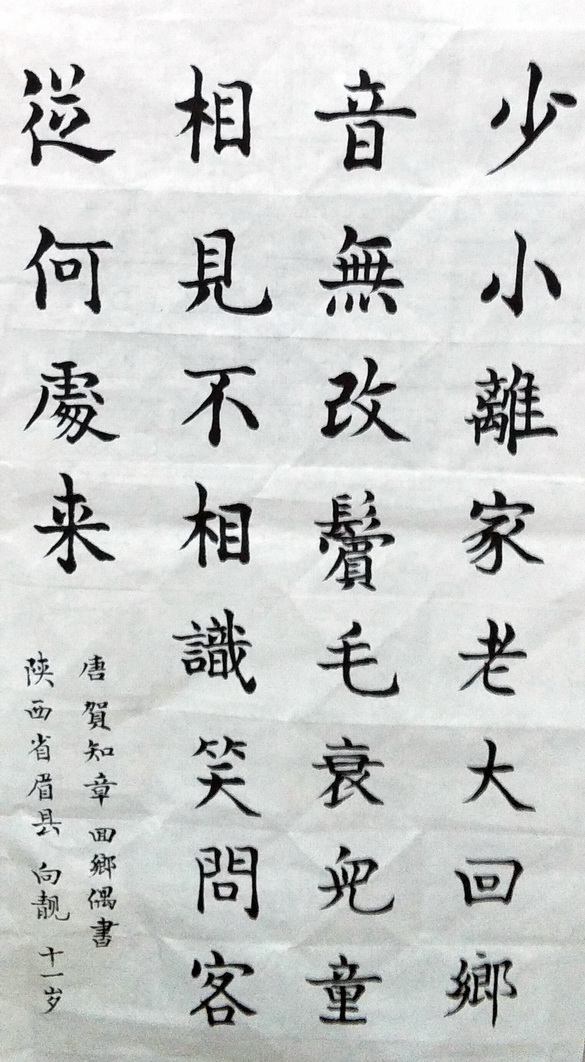 少小離家老大回鄉
音無改鬢毛衰兒童
相見不相識笑問客
從何處来
唐賀知章回鄉偶書
陝西省眉县向靓十一岁